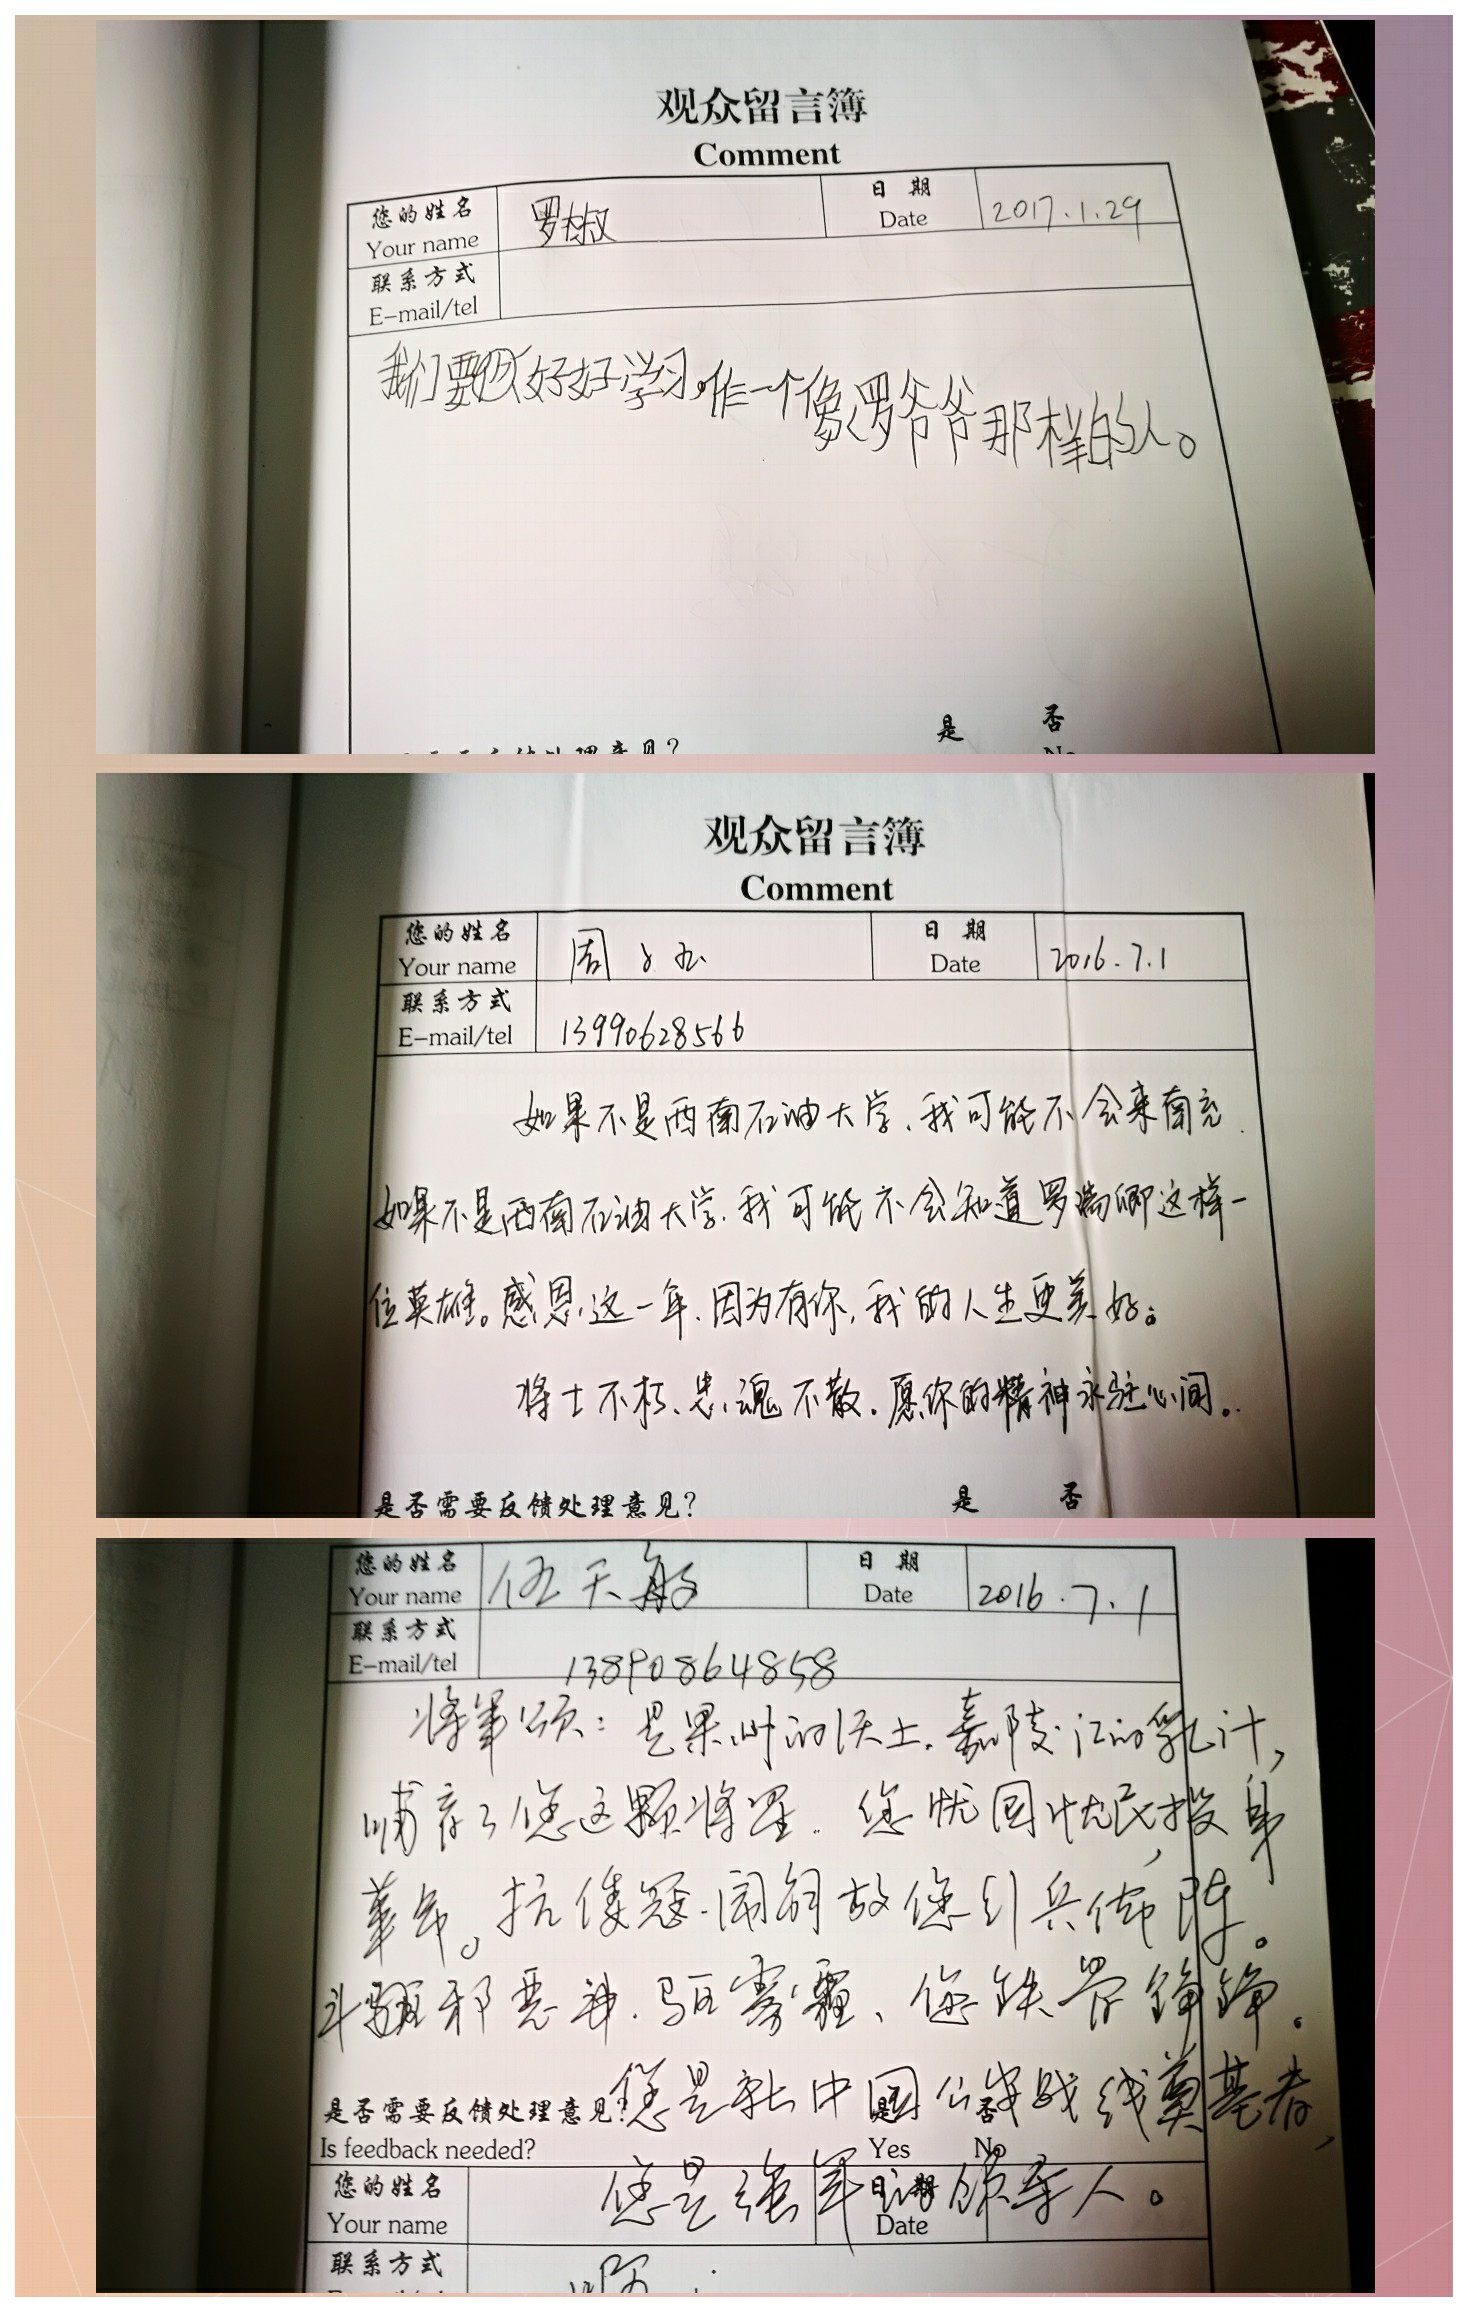 观众留言簿
Comment
您的姓名 日期
Your name 罗大叔 Date 2017.1.29
联系方式
E-mail/tel
我们要好好学习,作一个像罗爷爷那样的人。
是 否
处理意见?
观众留言簿
Comment
您的姓名 日期
Your name 周 Date 2016.7.1
联系方式
E-mail/tel 13990628566
如果不是西南石油大学,我可能不会来南充.
如果不是西南石油大学,我可能不会知道罗瑞卿这样一
位英雄。感恩这一年,因为有你,我的人生更美好。
将士不朽、忠魂不散。愿你的精神永驻心间。
是否需要反馈处理意见? 是 否
您的姓名 日期
Your name 伍天敏 Date 2016.7.1
联系方式
E-mail/tel 13890864858
将军颂:是果州的沃土,嘉陵江的乳汁,
哺育了您这颗将星。您忧国忧民,投身
革命。抗倭寇、闹翻 您引兵布阵。
斗 邪恶神、驱雾霾、您铁骨铮铮。
您是新中国公安战线奠基者,
是否需要反馈处理意见? 是 否
Is feedback needed? Yes No
您是强军的领导人。
您的姓名 日期
Your name Date
联系方式